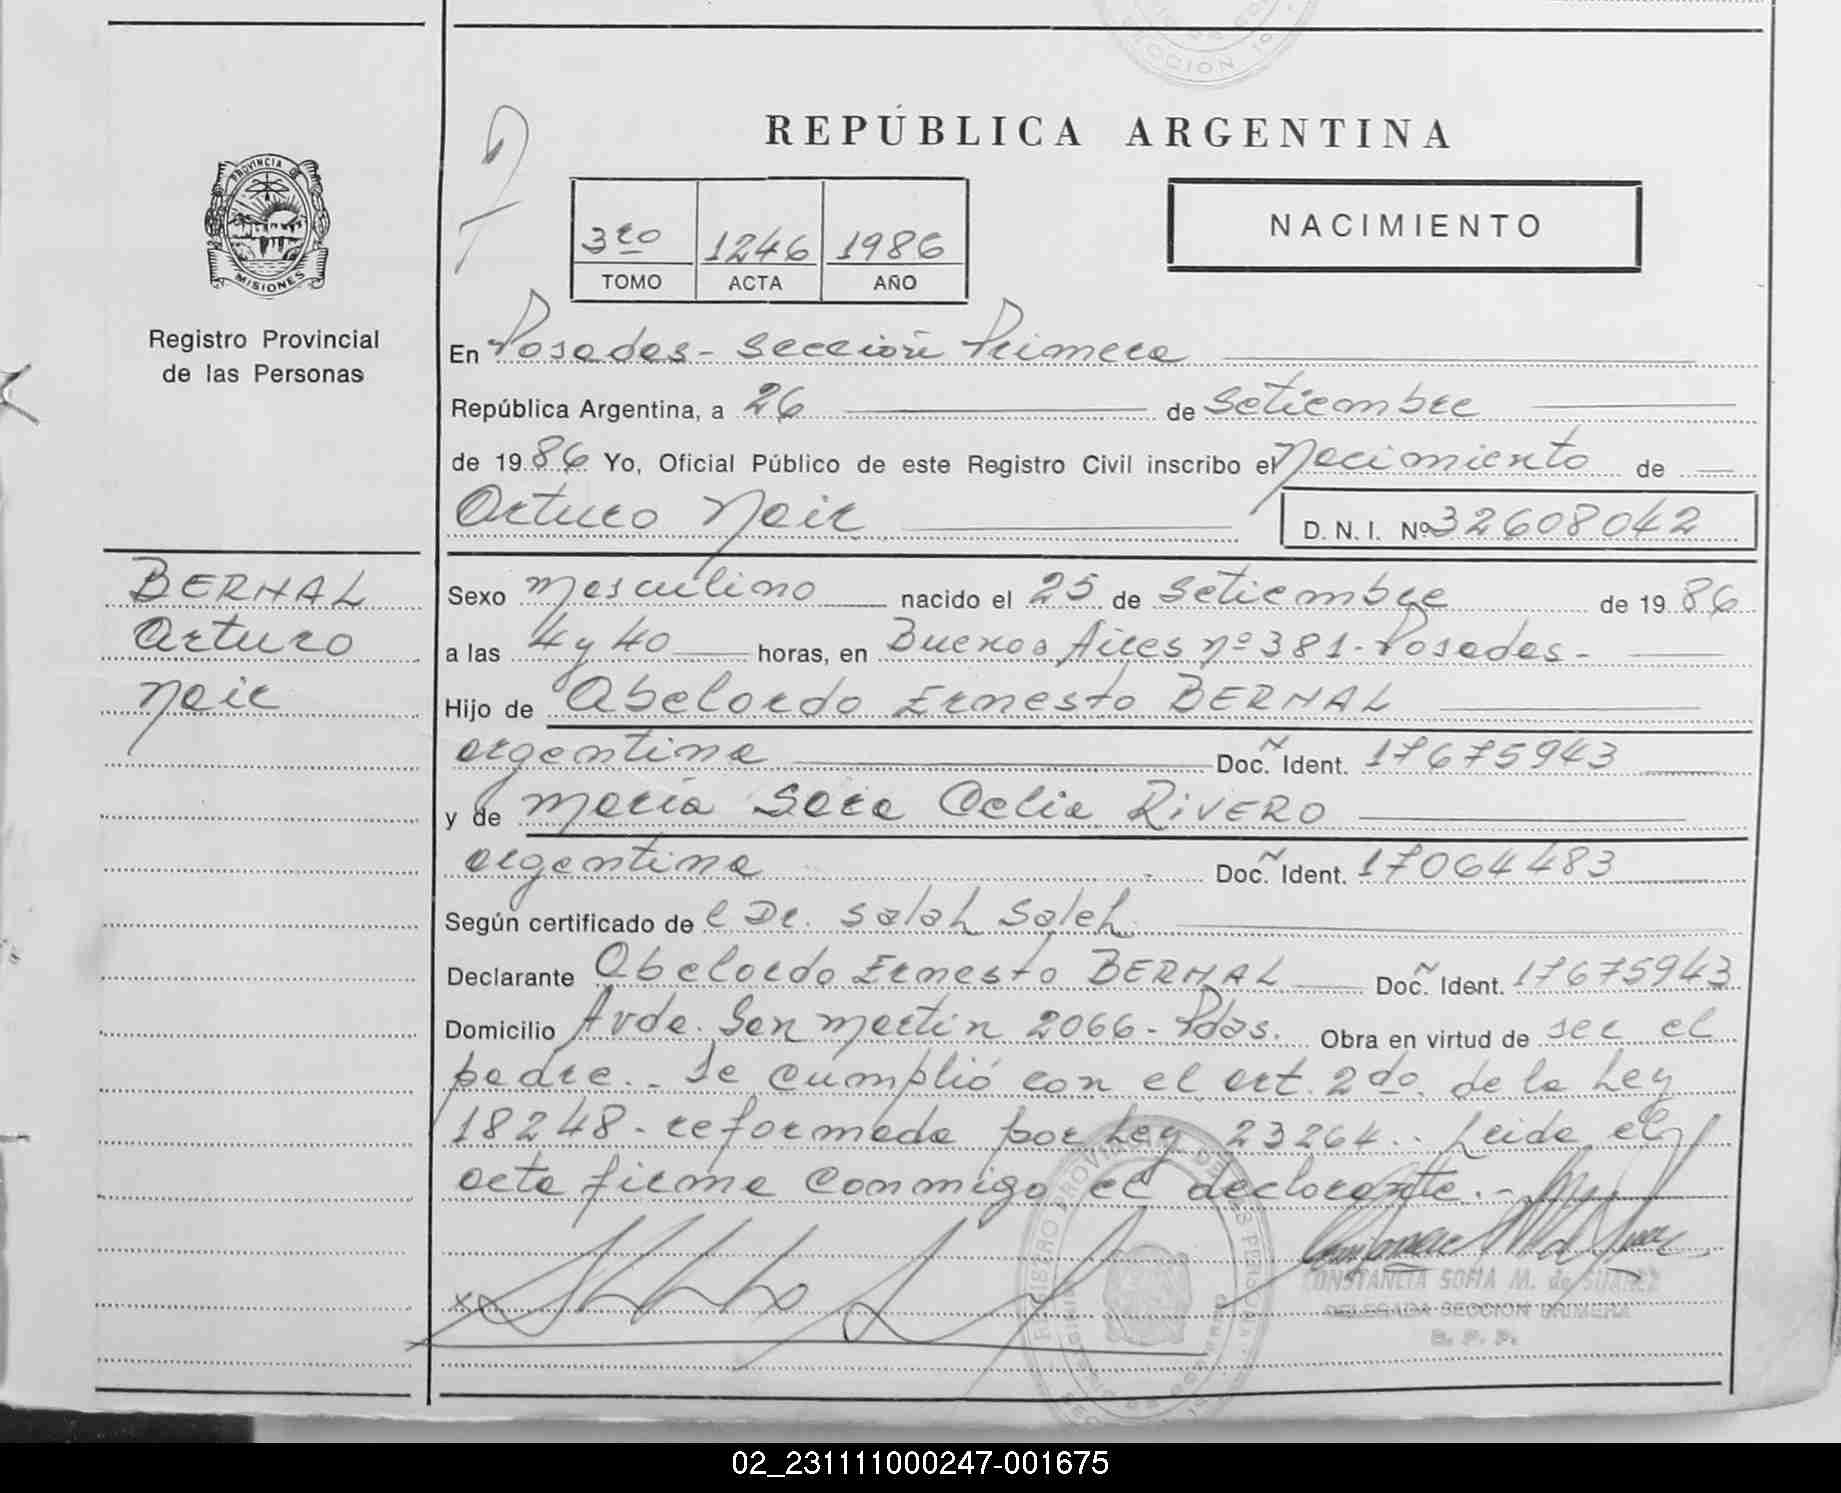 REPÚBLICA ARGENTINA
PROVINCIA DE MISIONES
Registro Provincial
de las Personas
3ro 1246 1986
TOMO ACTA AÑO
NACIMIENTO
En Posadas - Sección Primera
República Argentina, a 26 de Setiembre
de 1986 Yo, Oficial Público de este Registro Civil inscribo el Nacimiento de
Arturo Nair
D.N.I. Nº 32608042
BERNAL
Arturo
Nair
Sexo masculino nacido el 25 de Setiembre de 1986
a las 4 y 40 horas, en Buenos Aires nº 381 - Posadas -
Hijo de Abelardo Ernesto BERNAL
argentina Doc. Ident. 17675943
y de María Sara Celia RIVERO
argentina Doc. Ident. 17064483
Según certificado del Dr. Salah Saleh
Declarante Abelardo Ernesto BERNAL Doc. Ident. 17675943
Domicilio Avda. San Martín 2066 - Pdas. Obra en virtud de ser el
padre.- Se cumplió con el art. 2do. de la Ley
18248 - reformada por Ley 23264.- Leida el
acta firma conmigo el declarante.-
CONSTANCIA SOFIA M. de SUAREZ
DELEGADA SECCION PRIMERA
R. P. P.
02_231111000247-001675